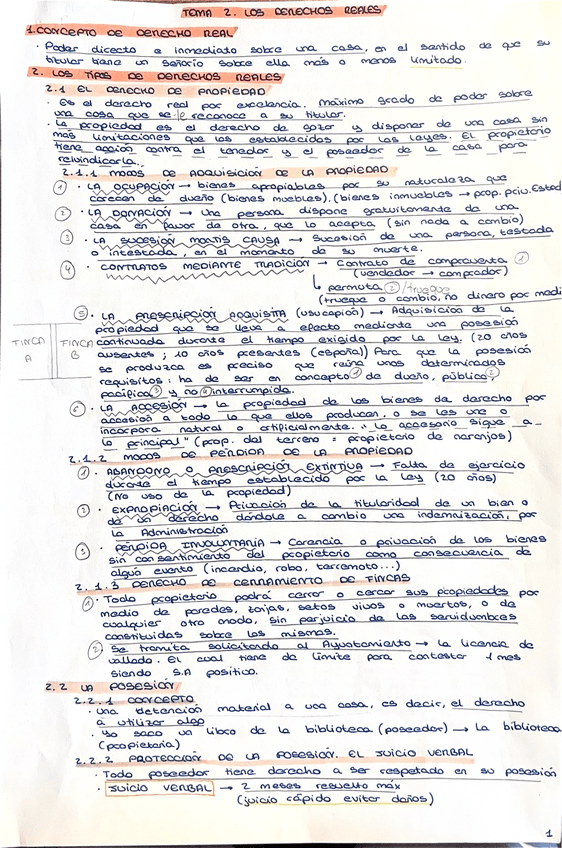 TEMA 2. LOS DERECHOS REALES
1. CONCEPTO DE DERECHO REAL
· Poder directo e inmediato sobre una cosa, en el sentido de que su
titular tiene un señorío sobre ella más o menos limitado.
2. LOS TIPOS DE DERECHOS REALES
2.1 EL DERECHO DE PROPIEDAD
· Es el derecho real por excelencia. Máximo grado de poder sobre
una cosa que se le reconoce a su titular.
· La propiedad es el derecho de gozar y disponer de una cosa sin
más limitaciones que las establecidas por las leyes. El propietario
tiene acción contra el tenedor y el poseedor de la cosa para
reivindicarla.
2.1.1 MODOS DE ADQUISICIÓN DE LA PROPIEDAD
1 · LA OCUPACIÓN → bienes apropiables por su naturaleza que
carecen de dueño (bienes muebles). (bienes inmuebles → prop. priv. Estad
2 · LA DONACIÓN → Una persona dispone gratuitamente de una
cosa en favor de otra, que lo acepta (sin nada a cambio)
3 · LA SUCESIÓN MORTIS CAUSA → Sucesión de una persona, testada
o intestada, en el momento de su muerte.
4 · CONTRATOS MEDIANTE TRADICIÓN → Contrato de compraventa 1
(vendedor → comprador)
↳ permuta 2 /trueque
(trueque o cambio, no dinero por medi
5 · LA PRESCRIPCIÓN ADQUISITIVA (usucapión) → Adquisición de la
propiedad que se lleva a efecto mediante una posesión
FINCA A FINCA B
continuada durante el tiempo exigido por la ley. (20 años
ausentes ; 10 años presentes (españa)) Para que la posesión
se produzca es preciso que reúna unos determinados
requisitos: ha de ser en concepto 1 de dueño, pública, 2
pacífica 3 y no 4 interrumpida.
6 · LA ACCESIÓN → La propiedad de los bienes da derecho por
accesión a todo lo que ellos producen, o se les une o
incorpora natural o artificialmente. "Lo accesorio sigue a
lo principal" (prop. del terreno = propietario de naranjos)
2.1.2 MODOS DE PÉRDIDA DE LA PROPIEDAD
1 · ABANDONO O PRESCRIPCIÓN EXTINTIVA → Falta de ejercicio
durante el tiempo establecido por la ley (20 años)
(No uso de la propiedad)
2 · EXPROPIACIÓN → Privación de la titularidad de un bien o
de un derecho dándole a cambio una indemnización, por
la Administración
3 · PÉRDIDA INVOLUNTARIA → Carencia o privación de los bienes
sin consentimiento del propietario como consecuencia de
algún evento (incendio, robo, terremoto...)
2.1.3 DERECHO DE CERRAMIENTO DE FINCAS
1 · Todo propietario podrá cerrar o cercar sus propiedades por
medio de paredes, zanjas, setos vivos o muertos, o de
cualquier otro modo, sin perjuicio de las servidumbres
constituidas sobre las mismas.
2 · Se tramita solicitando al Ayuntamiento → la licencia de
vallado. El cual tiene de límite para contestar 1 mes
siendo S.A positivo.
2.2 LA POSESIÓN
2.2.1 CONCEPTO
· Una detención material a una cosa, es decir, el derecho
a utilizar algo
· Yo saco un libro de la biblioteca (poseedor) → La biblioteca
(propietaria)
2.2.2 PROTECCIÓN DE LA POSESIÓN. EL JUICIO VERBAL
· Todo poseedor tiene derecho a ser respetado en su posesión
· JUICIO VERBAL → 2 meses resuelto máx
(juicio rápido evitar daños)
1